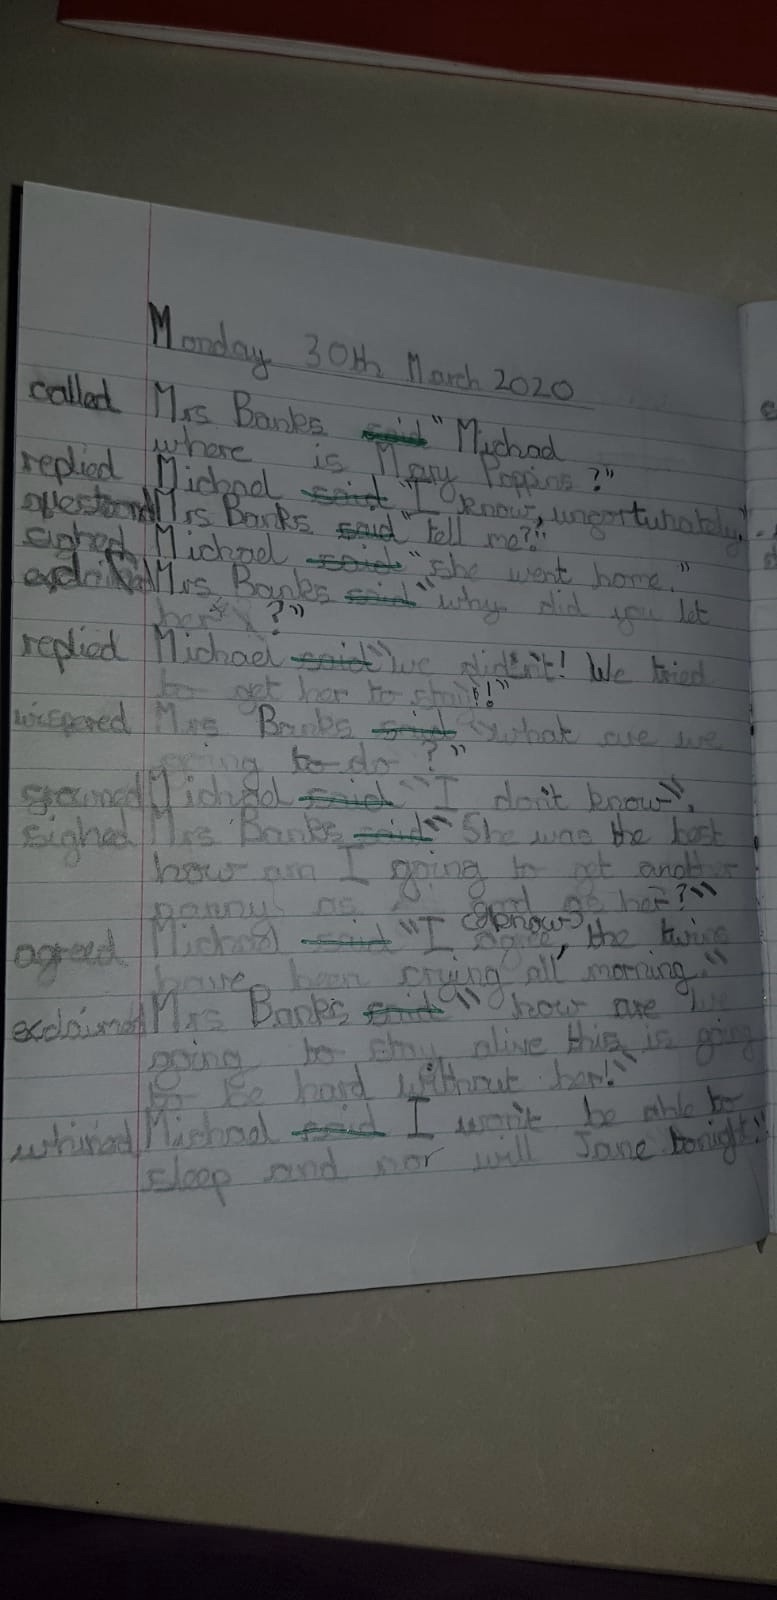 Monday 30th March 2020
called Mrs Banks said "Michael
where is Mary Poppins?"
replied Michael said "I know, ungortuhately."
Mrs Banks said "tell me?!"
sighed Michael said "she went home."
Mrs Banks said "why did you let
her ?"
replied Michael said "we did'nt! We tried
to get her to stay!"
wispered Mrs Banks said "what are we
going to do?"
Michael said "I don't know",
sighed Mrs Banks said "She was the best
how am I going to get another
nanny as good as her?"
agreed Michael said "I agree, the twins
have been crying all morning"
exclaimed Mrs Banks said "how are we
going to stay alive this is going
to be hard without her!"
whined Michael said I won't be able to
sleep and nor will Jane tonight."